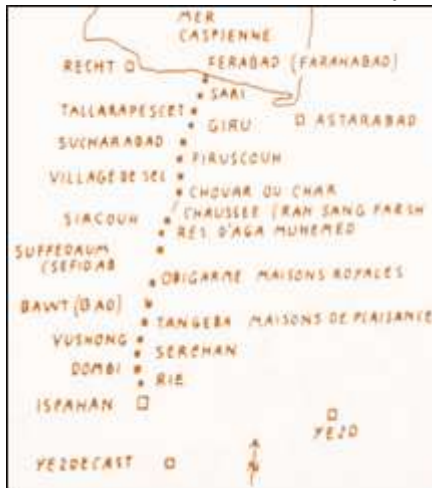 MER
CASPIENNE
RECHT
FERABAD (FARAHABAD)
SARI
TALLARAPESCET
GIRU
ASTARABAD
SUCHARABAD
FIRUSCOUH
VILLAGE DE SEL
CHOUAR OU CHAR
SIACOUH
CHAUSSEE (RAH SANG FARSH
RES D'AGA MUHEMED
SUFFEDAUM
(SEFIDAB
OBIGARME MAISONS ROYALES
BAWT (BAD)
TANGEBA MAISONS DE PLAISANCE
VUSHONG
SERCHAN
DOMBI
RIE
ISPAHAN
YEZD
YEZDECAST
N